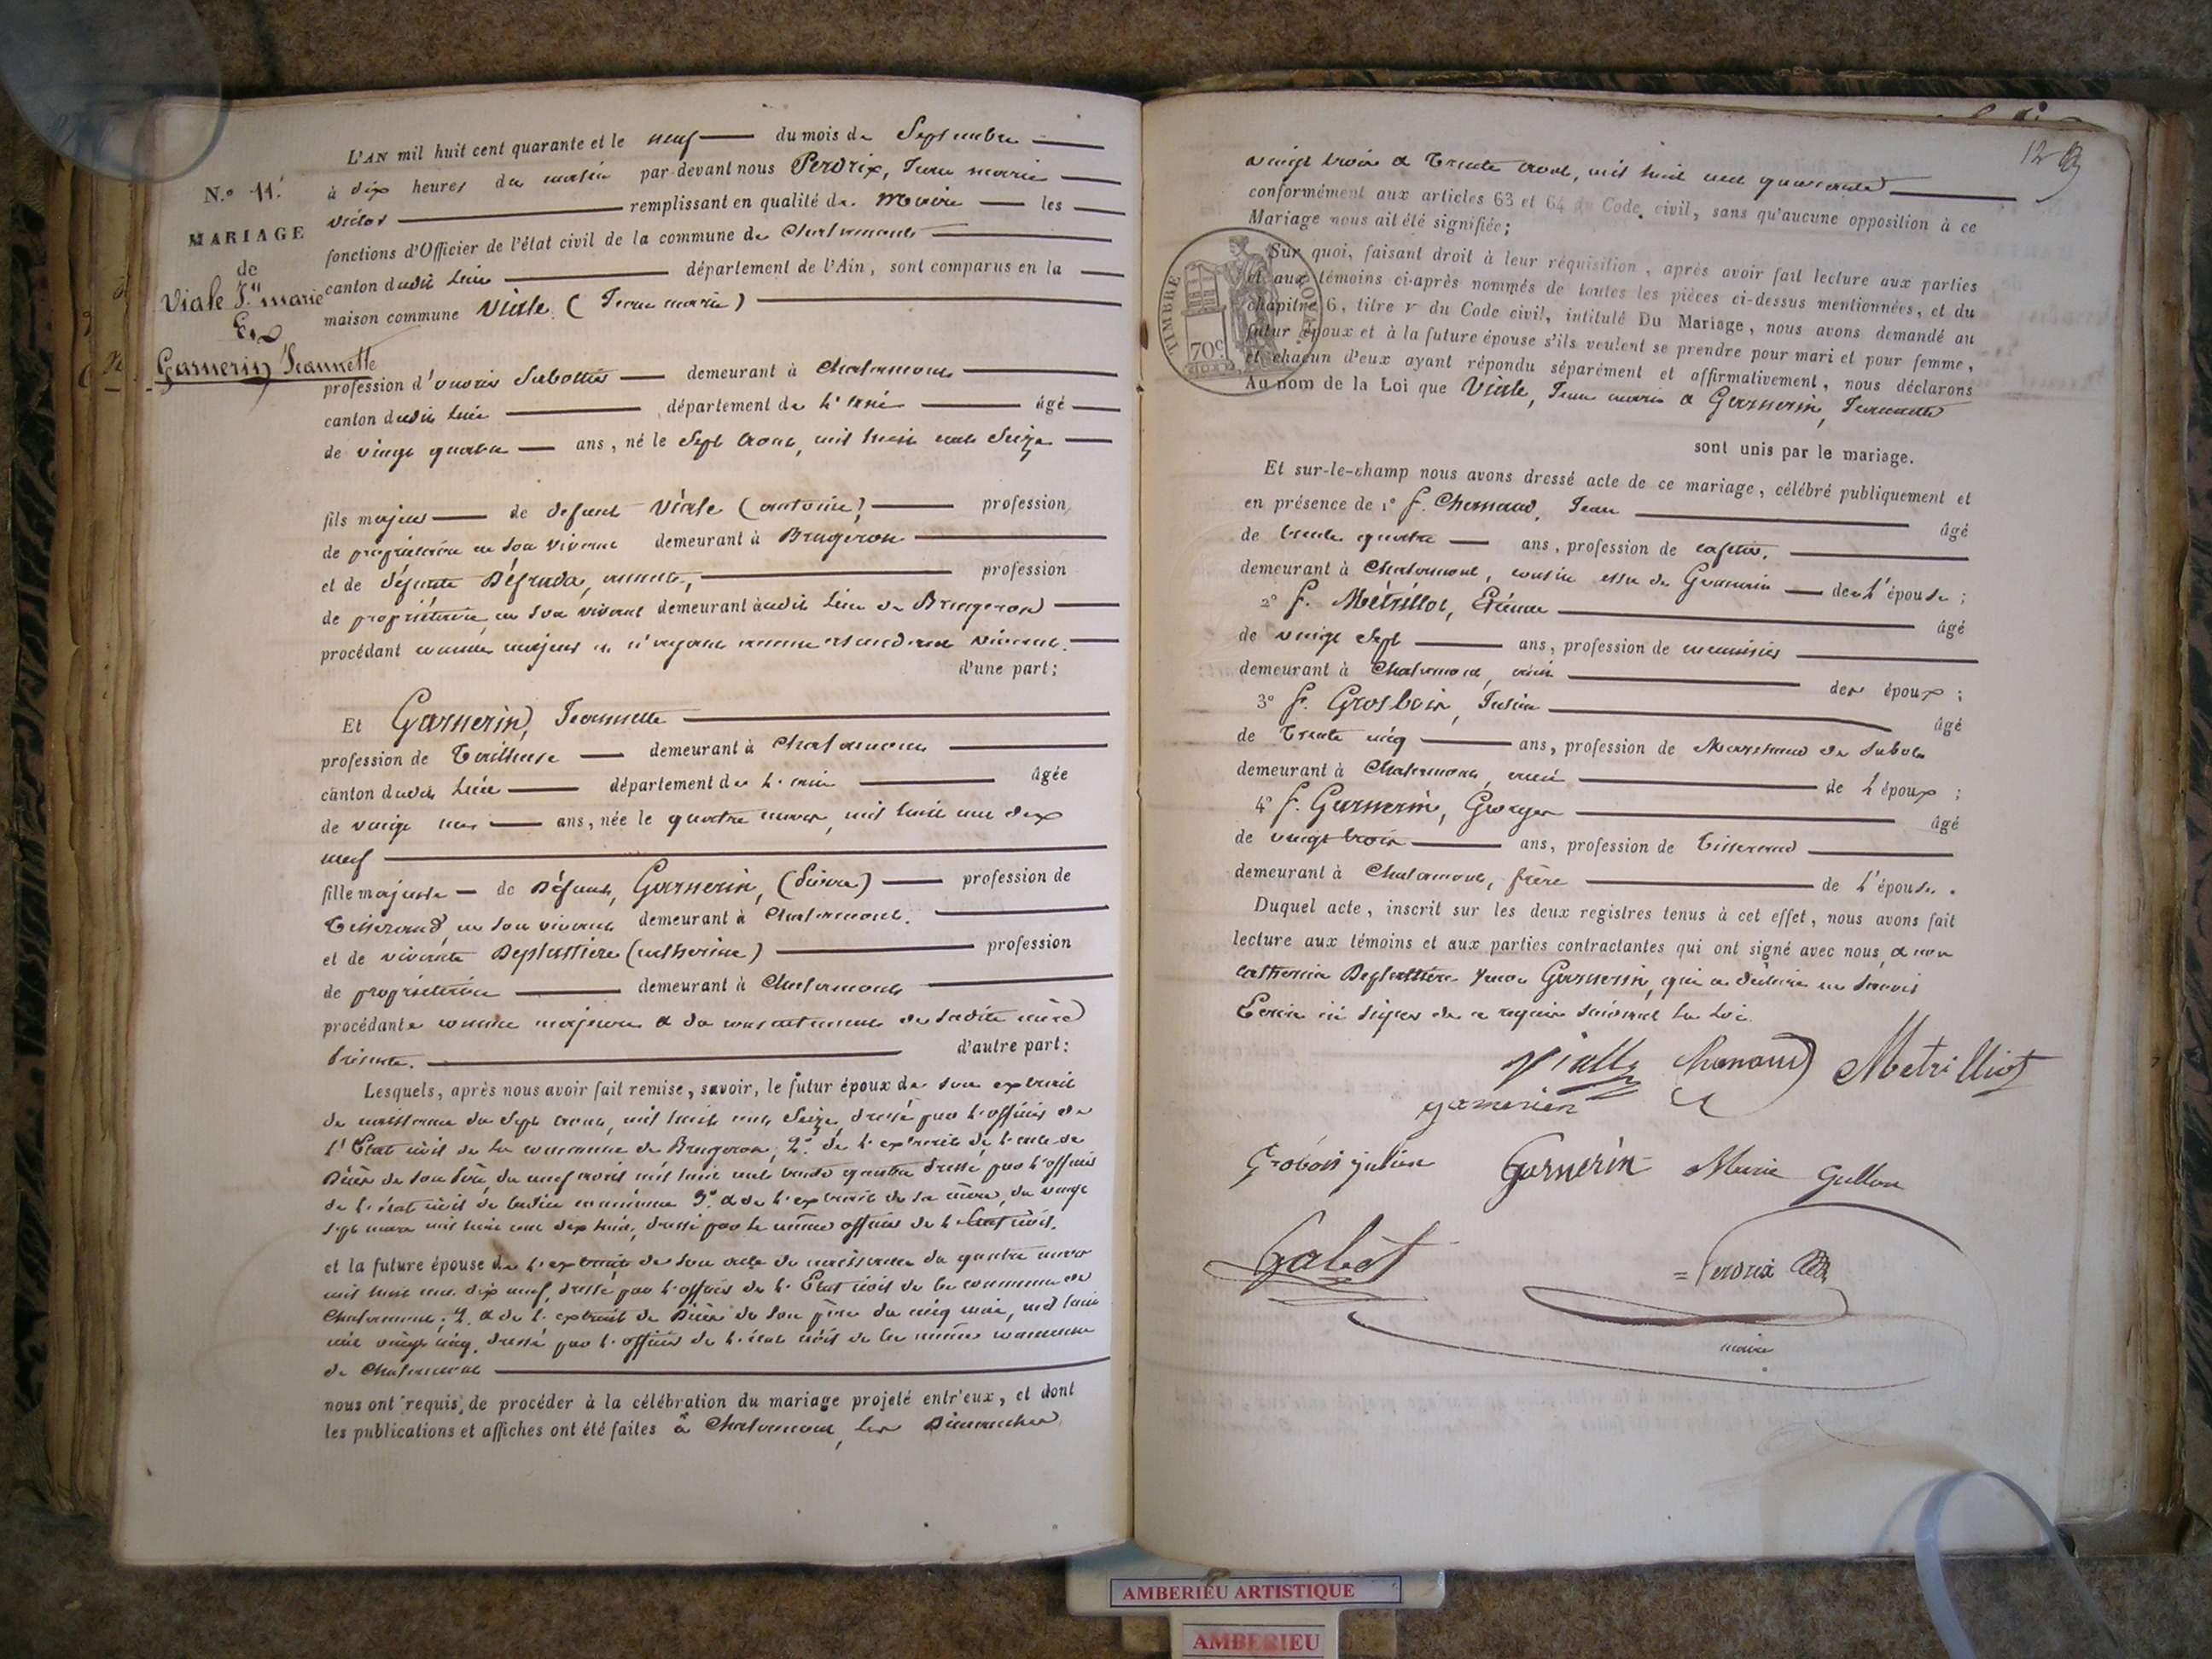 L'AN mil huit cent quarante et le neuf du mois de Septembre
à dix heures du matin par-devant nous Perdrix, Jean marie
victor remplissant en qualité de Maire les
fonctions d'Officier de l'état civil de la commune de Chalamont
canton dudit lieu département de l'Ain, sont comparus en la
maison commune Viale (Jean marie)
N.° 11.
MARIAGE
de
Viale J.n marie
Et
Garnerin Jeannette
profession d'ouvrier Sabottier demeurant à Chalamont
canton dudit lieu département de L'ain âgé
de vingt quatre ans, né le Sept aout, mil huit cent Seize
fils majeur de defunt Viale (antoine) profession
de propriétaire en son vivant demeurant à Brugeron
et de défunte annette, profession
de propriétaire, en son vivant demeurant audit Lieu de Brugeron
procédant comme majeur et n'ayant aucun ascendant vivant.
d'une part;
Et Garnerin, Jeannette
profession de Tailleuse demeurant à Chalamont
canton dudit Lieu département de L'ain âgée
de vingt un ans, née le quatre mars, mil huit cent dix
neuf
fille majeure de Défunt, Garnerin, (Pierre) profession de
Tisserand, en son vivant demeurant à Chalamont.
et de vivante Deplastiere (catherine) profession
de propriétaire demeurant à Chalamont
procédante comme majeure & du consentement de sadite mère
Présente. d'autre part:
Lesquels, après nous avoir fait remise, savoir, le futur époux de son extrait
de naissance du Sept aout, mil huit cent Seize, dressé par l'officier de
l'Etat civil de la commune de Brugeron; 2.° de l'extrait de l'acte de
Décès de son Père, du neuf avril mil huit cent trente quatre dressé par l'officier
de l'état civil de ladite commune 3.° & de l'extrait de sa mère, du vingt
sept mars mil huit cent dix huit, dressé par le même officier de l'Etat civil.
et la future épouse de l'extrait de son acte de naissance du quatre mars
mil huit cent dix neuf, dressé par l'officier de l'Etat civil de la commune de
Chalamont; 2. & de l'extrait de Décès de son père du cinq mai, mil huit
cent vingt cinq, dressé par l'officier de l'état civil de la même commune
de Chalamont
nous ont requis, de procéder à la célébration du mariage projeté entr'eux, et dont
les publications et affiches ont été faites à Chalamont, les Dimanches
vingt trois & trente aout, mil huit cent quarante
conformément aux articles 63 et 64 du Code civil, sans qu'aucune opposition à ce
Mariage nous ait été signifiée;
Sur quoi, faisant droit à leur réquisition, après avoir fait lecture aux parties
et aux témoins ci-après nommés de toutes les pièces ci-dessus mentionnées, et du
chapitre 6, titre v du Code civil, intitulé Du Mariage, nous avons demandé au
futur époux et à la future épouse s'ils veulent se prendre pour mari et pour femme,
et chacun d'eux ayant répondu séparément et affirmativement, nous déclarons
Au nom de la Loi que Viale, Jean marie & Garnerin, Jeannette
TIMBRE ROYAL
70c
sont unis par le mariage.
Et sur-le-champ nous avons dressé acte de ce mariage, célébré publiquement et
en présence de 1° f. Chanaud, Jean âgé
de trente quatre ans, profession de cafetier.
demeurant à Chalamont, cousin de Germain de L'épouse;
2° f. Métrillot, Etienne âgé
de vingt Sept ans, profession de menuisier
demeurant à Chalamont, ami des époux;
3° f. Grosbois, Julien âgé
de Trente cinq ans, profession de Marchand de Sabots
demeurant à Chalamont, ami de L'époux;
4° f. Garnerin, Georges âgé
de vingt trois ans, profession de Tisserand
demeurant à Chalamont, frère de L'épouse.
Duquel acte, inscrit sur les deux registres tenus à cet effet, nous avons fait
lecture aux témoins et aux parties contractantes qui ont signé avec nous, & non
catherine Deplastiere veuve Garnerin, qui a déclaré ne savoir
Ecrire ni signer de ce requise suivant La Loi.
Vialle Chanaud Metrilliot
garnerien
Grobois julien Garnerin Marie Gallon
Galet Perdrix
maire
AMBERIEU ARTISTIQUE
AMBERIEU